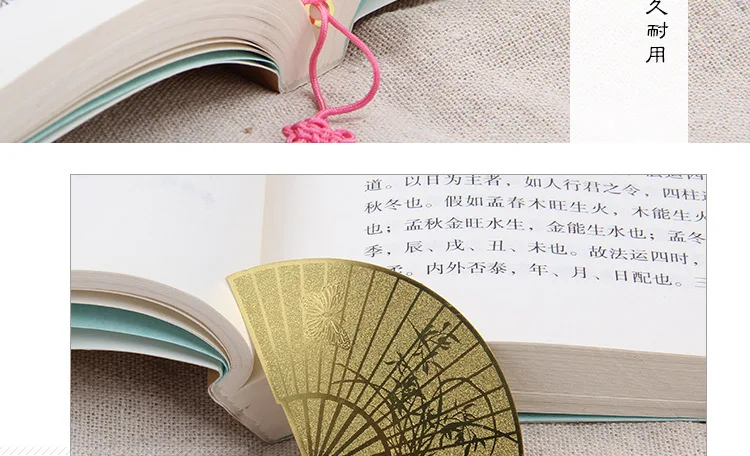 久耐用
道。以日为主者，如人行君之令，四柱
秋冬也。假如孟春木旺生火，木能生火
也；孟秋金旺水生，金能生水也；孟冬
季，辰、戌、丑、未也。故法运四时，
柔。内外否泰，年、月、日配也。